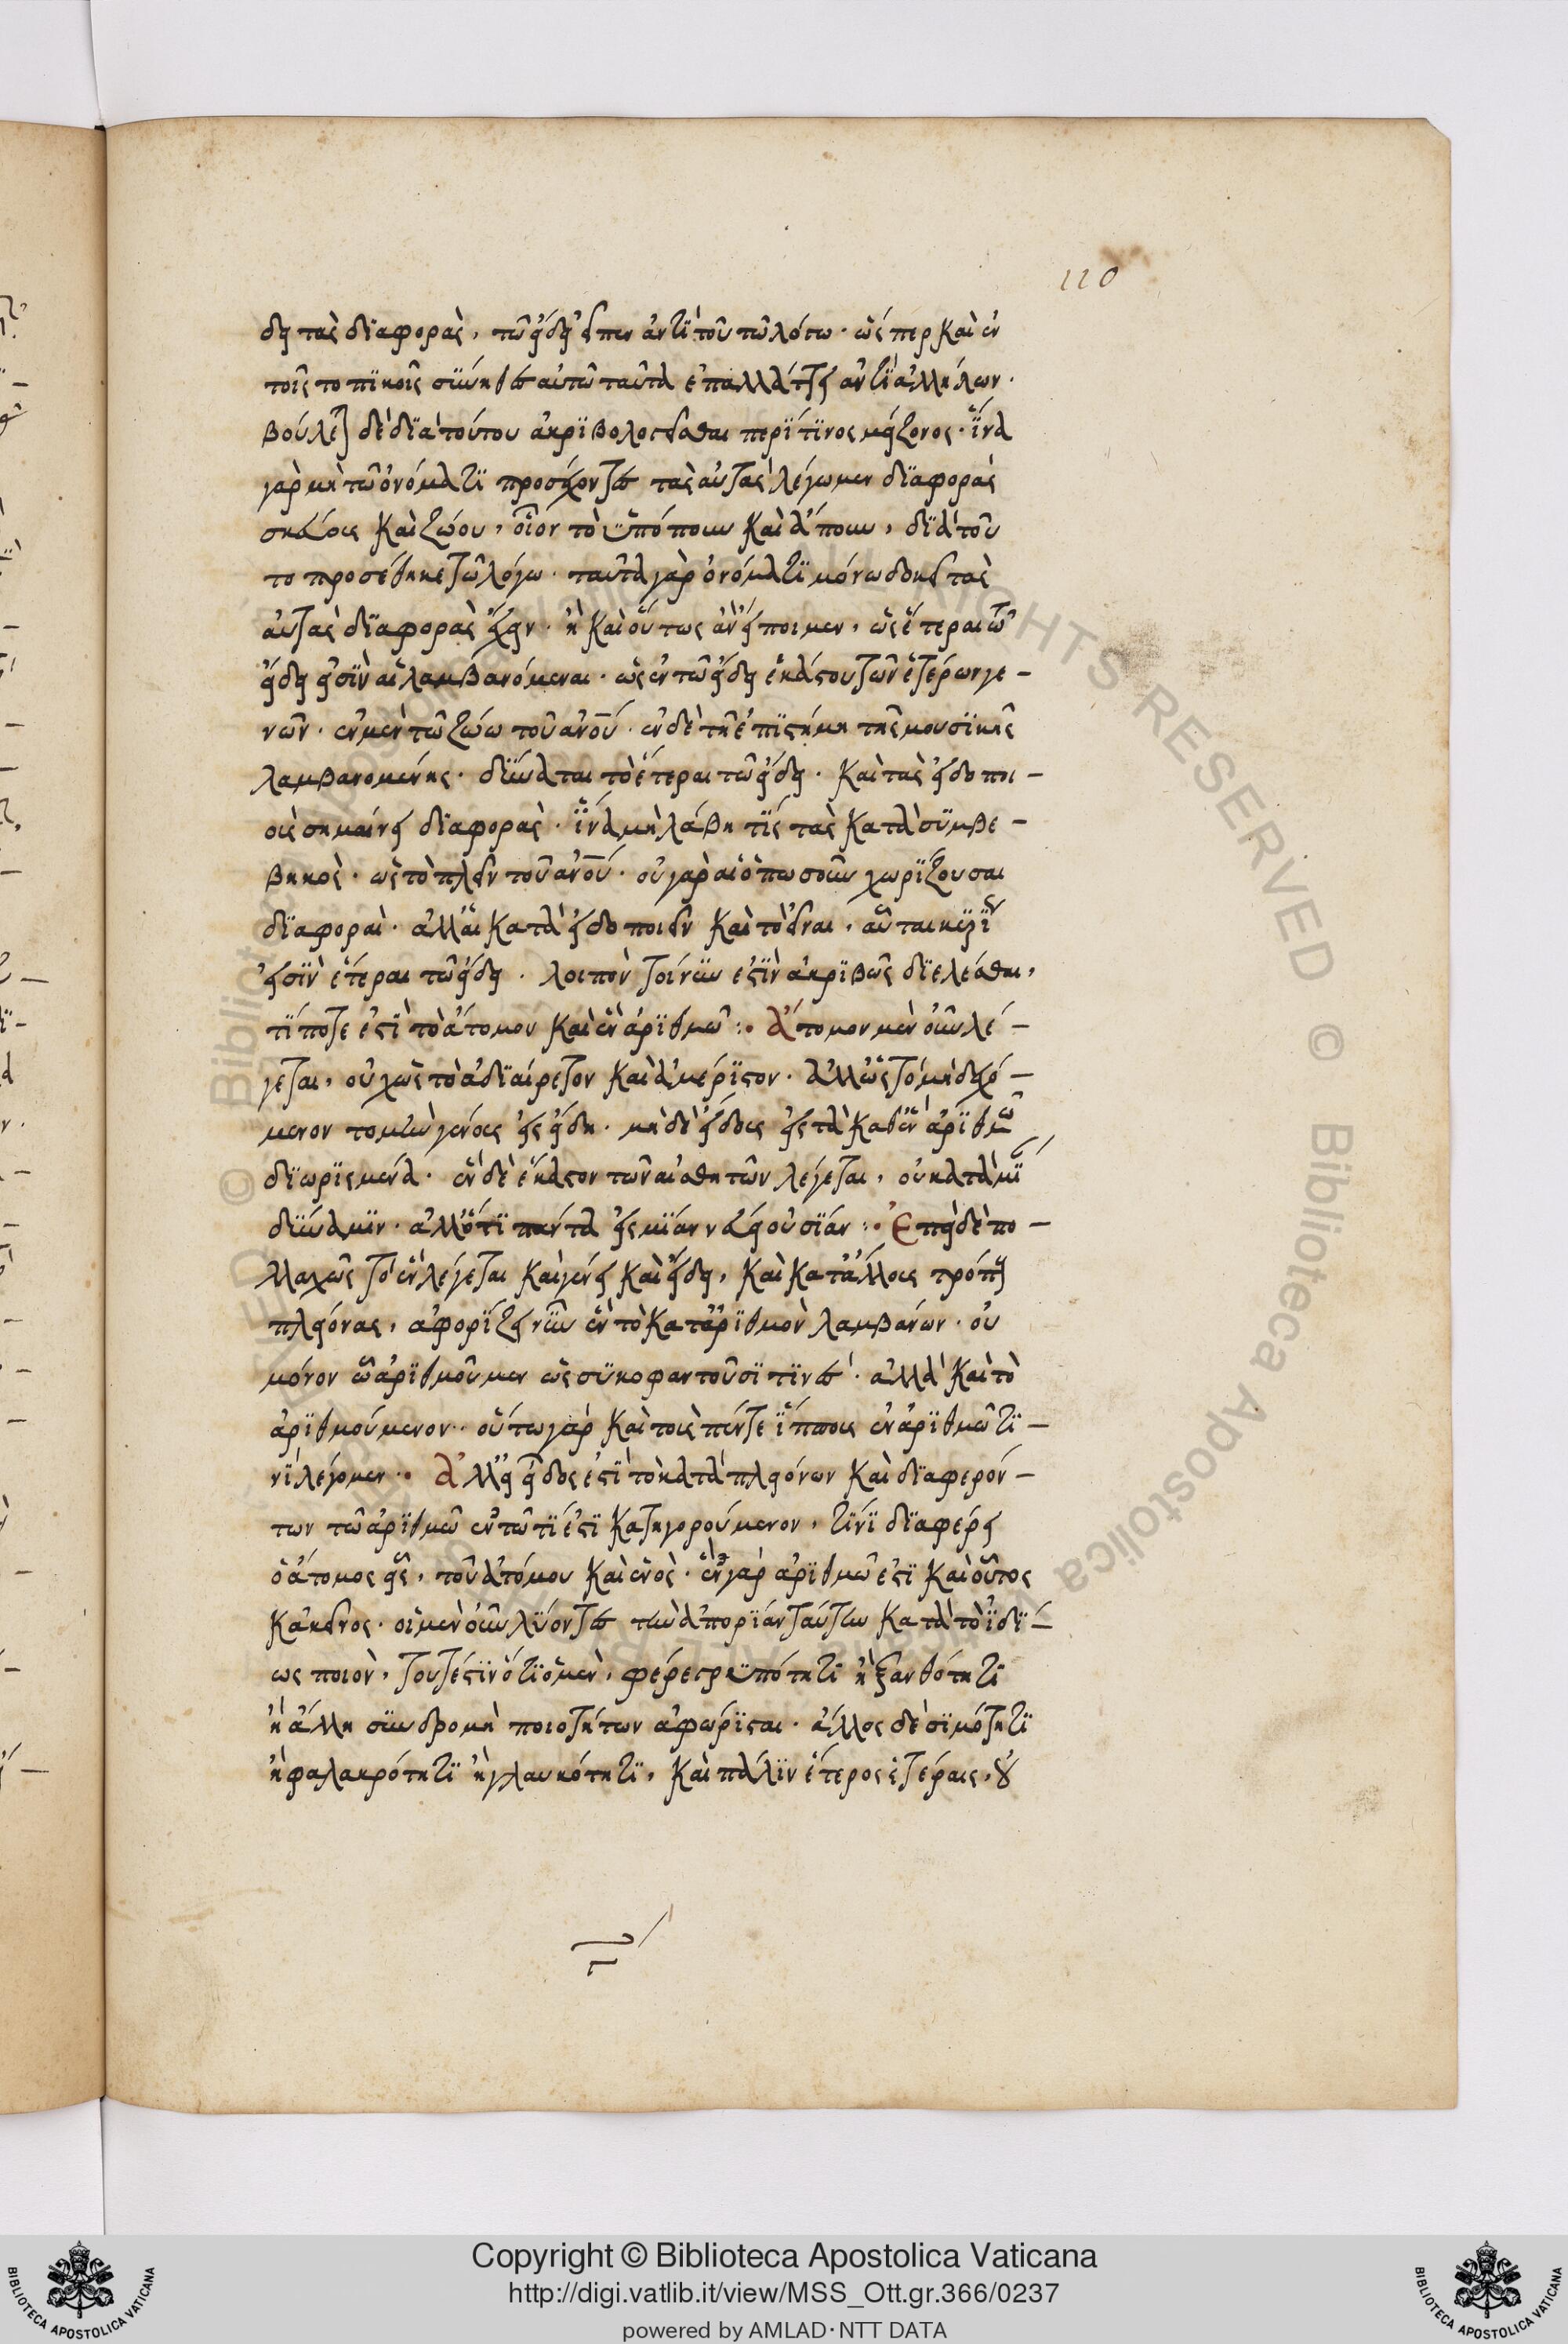 110
δη τὰς διαφορὰς, τῶ εἴδει εἶπεν ἀντὶ τοῦ τῶ λόγω. ὥσπερ καὶ ἐν
τοῖς τοπικοῖς σύνηθες αὐτῶ ταῦτα ἐπαλλάττειν ἀντὶ ἀλλήλων.
βούλεται δὲ διὰ τούτου ἀκριβολογεῖσθαι περί τινος μείζονος. ἵνα
γὰρ μὴ τῶ ὀνόματι προσέχοντες τὰς αὐτὰς λέγωμεν διαφορὰς
σκεύους καὶ ζώου, οἷον τὸ ὑπόπουν καὶ ἄπουν, διὰ τοῦ
το προσέθηκε τῶ λόγω. ταῦτα γὰρ ὀνόματι μόνω δοκεῖ τὰς
αὐτὰς διαφορὰς ἔχειν. ἢ καὶ οὕτως ἂν εἴποιμεν, ὡς ἕτεραι τῶ
εἴδει εἰσὶν αἱ λαμβανόμεναι. ὡς ἐν τῶ εἴδει ἑκάστου τῶν ἑτέρων γε -
νῶν. ἐν μὲν τῶ ζώω τοῦ ἀνοῦ. ἐν δὲ τῆ ἐπιστήμη τῆς μουσικῆς
λαμβανομένης. δύναται τὸ ἕτεραι τῶ εἴδει. καὶ τὰς εἰδοποι -
οὺς σημαίνειν διαφορὰς. ἵνα μὴ λάβη τίς τὰς κατὰ συμβε -
βηκὸς. ὡς τὸ πλεῖν τοῦ ἀνοῦ. οὐ γὰρ αἱ ὁπωσοῦν χωρίζουσαι
διαφοραὶ. ἀλλ' αἱ κατὰ εἰδοποιεῖν καὶ τὸ εἶναι, αὗται
εἰσὶν ἕτεραι τῶ εἴδει. λοιπὸν τοίνυν ἐστὶν ἀκριβῶς διελέσθαι,
τί ποτε ἐστὶ τὸ ἄτομον καὶ ἓν ἀριθμῶ :. ἄτομον μὲν οὖν λέ -
γεται, οὐχ ὡς τὸ ἀδιαίρετον καὶ ἀμέριστον. ἀλλ' ὡς τὸ μὴ δεχό -
μενον τομὴν γένους εἰς εἴδη. μὴ δὲ εἴδους εἰς τὰ καθ' ἓν ἀριθμῶ
διωρισμένα. ἓν δὲ ἕκαστον τῶν αἰσθητῶν λέγεται, οὐ κατὰ μίαν
δύναμιν. ἀλλ' ὅτι πάντα εἰς μίαν νεύει οὐσίαν :. Ἐπεὶ δὲ πο -
λλαχῶς τὸ ἓν λέγεται καὶ γένει καὶ εἴδει, καὶ κατ' ἄλλους τρόπους
πλείονας, ἀφορίζει νῦν ἓν τὸ κατ' ἀριθμὸν λαμβάνων. οὐ
μόνον ὧ ἀριθμοῦμεν ὡς συκοφαντοῦσί τινες. ἀλλὰ καὶ τὸ
ἀριθμούμενον.. οὕτω γὰρ καὶ τοὺς πέντε ἵππους ἐν ἀριθμῶ τι -
νὶ λέγομεν.. ἀλλ' εἰ εἶδος ἐστὶ τὸ κατὰ πλειόνων καὶ διαφερόν -
των τῶ ἀριθμῶ ἐν τῶ τί ἐστι κατηγορούμενον, τίνι διαφέρει
ὁ ἄτομος εἷς, τοῦ ἀτόμου καὶ ἑνὸς. ἓν γὰρ ἀριθμῶ ἐστὶ καὶ οὗτος
κἀκεῖνος. οἱ μὲν οὖν λύοντες τὴν ἀπορίαν ταύτην κατὰ τὸ ἰδί -
ως ποιὸν, τουτέστιν ὅτι ὁ μὲν, φέρε γρυπότητι ἢ ξανθότητι
ἢ ἄλλη συνδρομὴ ποιοτήτων ἀφώρισται. ἄλλος δὲ σιμότητι
ἢ φαλακρότητι ἢ γλαυκότητι, καὶ πάλιν ἕτερος ἑτέραις, οὐ
Copyright © Biblioteca Apostolica Vaticana
http://digi.vatlib.it/view/MSS_Ott.gr.366/0237
powered by AMLAD·NTT DATA